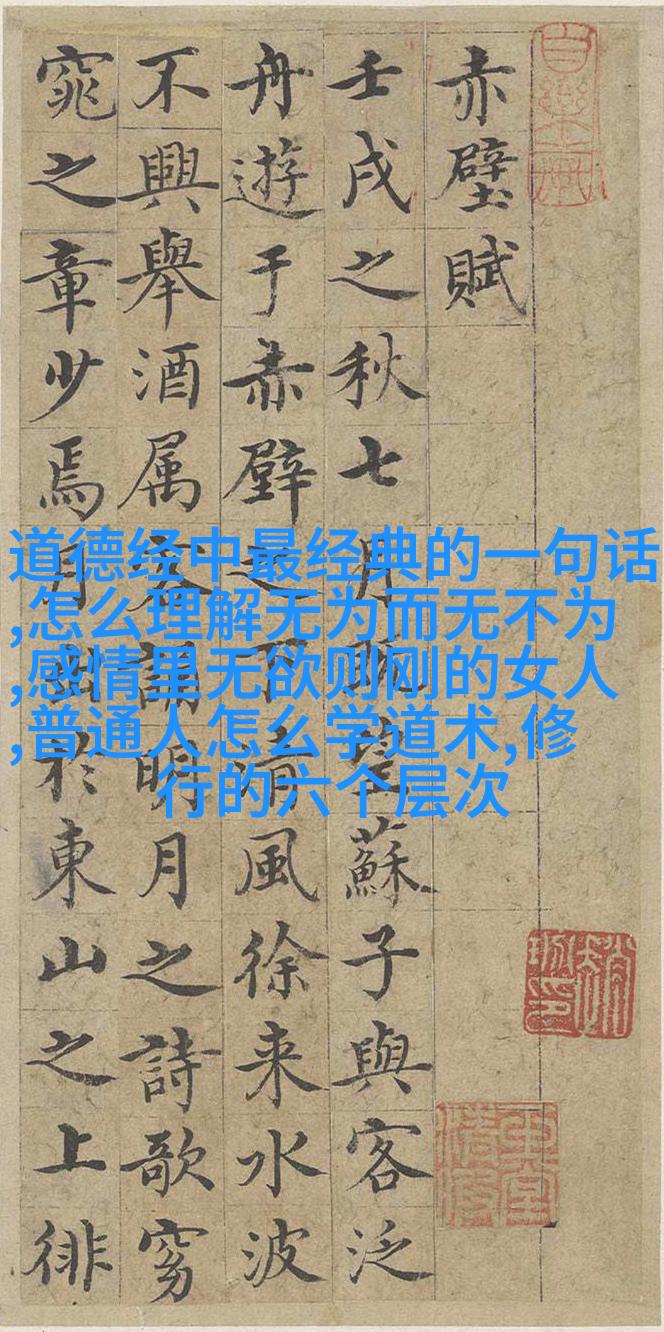 赤壁賦
壬戌之秋七月既望蘇子與客泛
舟遊于赤壁之下清風徐来水波
不興舉酒属客誦明月之詩歌窈
窕之章少焉月出於東山之上徘
道德经中最经典的一句话
,怎么理解无为而无不为
,感情里无欲则刚的女人
,普通人怎么学道术,修
行的六个层次